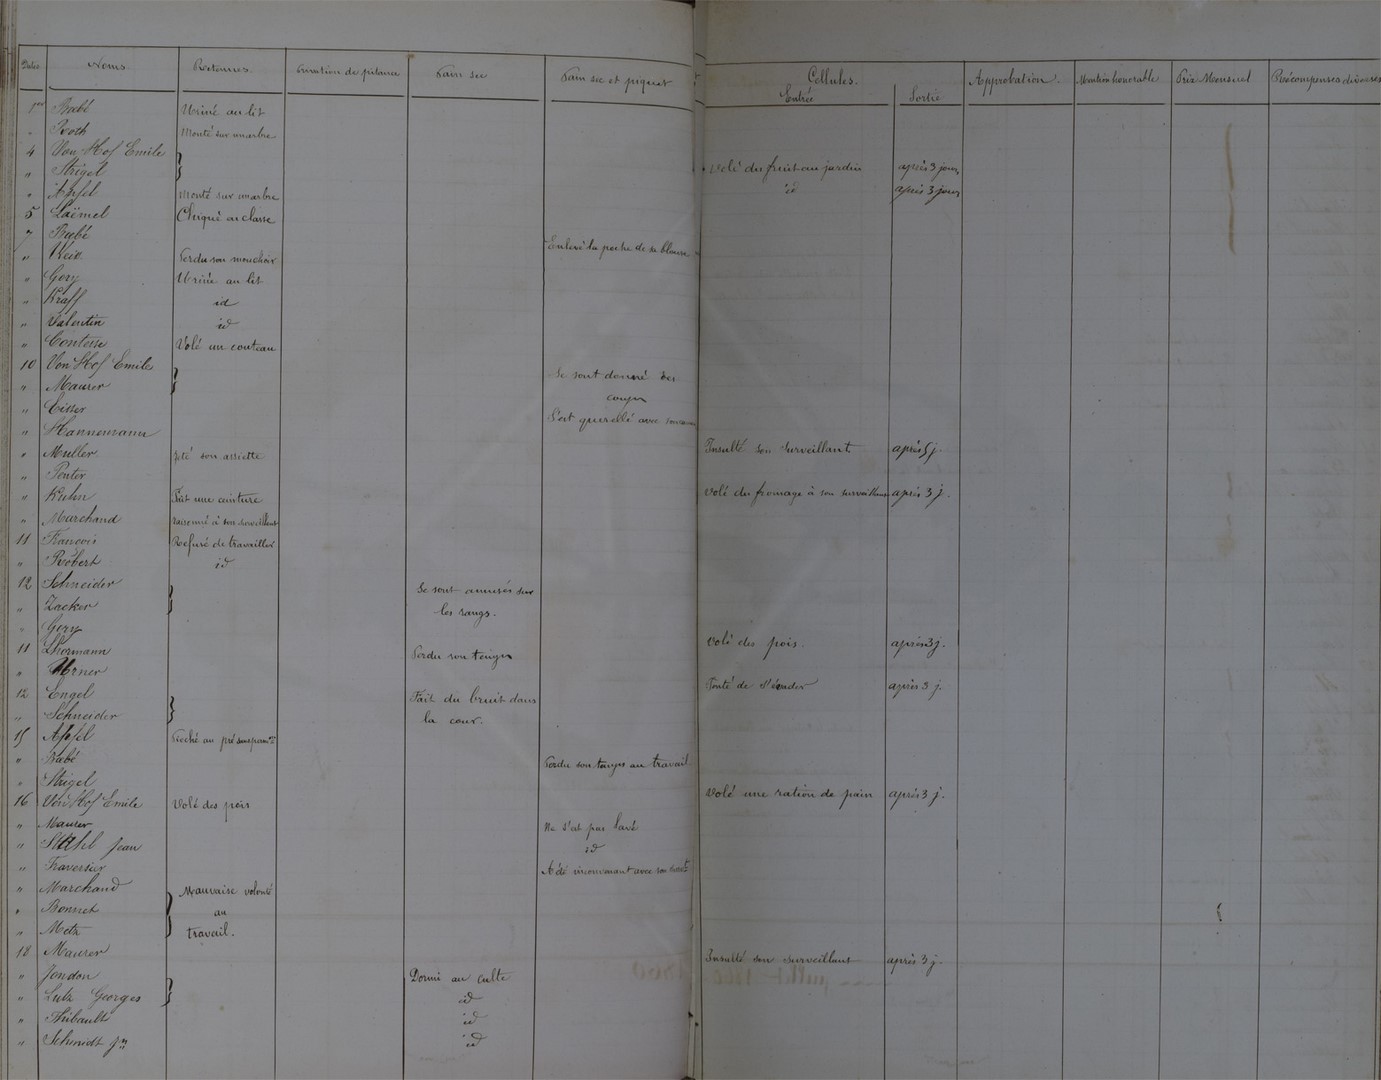 Dates Noms Retenues Privation de pitance Pain sec Pain sec et piquet Cellules. Approbation. Mention honorable Prix Mensuel Récompenses diverses
Entrée Sortie
1er Babé Uriné au lit
" Roth Monté sur un arbre
4 Von Hof Emile }
" Strigel Volé du fruit au jardin après 3 jours
" Apfel Monté sur un arbre id après 3 jours
5 Laëmel Chiqué en classe
7 Babé Enlevé la poche de sa blouse
" Weix Perdu son mouchoir
" Gery Uriné au lit
" Kraff id
" Valentin id
" Contesse Volé un couteau
10 Von Hof Emile } Se sont donné des
" Maurer coups
" Eisser S'est querellé avec
" Hannemann
" Muller Jeté son assiette Insulté son surveillant après 5 j.
" Penter
" Kuhn Fait une ceinture Volé du fromage à son surveillant après 3 j.
" Marchand raisonné à son surveillant
11 Francois Refusé de travailler
" Robert id
12 Schneider } Se sont amusés sur
" Zacker les rangs.
" Gery Volé des pois. après 3 j.
11 Lhormann Perdu son temps
" Urner Tenté de s'évader après 3 j.
12 Engel } Fait du bruit dans
" Schneider la cour.
15 Apfel
" Babé Perdu son temps au travail
" Strigel Volé une ration de pain après 3 j.
16 Von Hof Emile Volé des pois
" Maurer Ne s'est pas lavé
" Stahl Jean id
" Traversier A été inconvenant avec son
" Marchand } Mauvaise volonté
" Bonnet au
" Metz travail.
18 Maurer Insulté son surveillant après 3 j.
" Jondon } Dormi au culte
" Lutz Georges id
" Thibault id
" Schmidt jn id